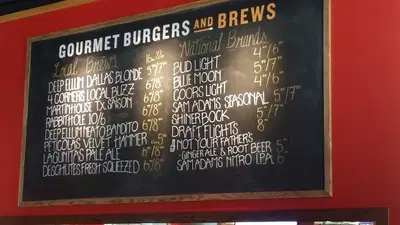 GOURMET BURGERS AND BREWS
Local Brews
DEEP ELLUM DALLAS BLONDE 5"/7"
4 CORNERS LOCAL BUZZ 6"/8"
MARTIN HOUSE TX. SAISON 6"/8"
RABBIT HOLE 10/6 6"/8"
DEEP ELLUM NEATO BANDITO 6"/8"
PETICOLAS VELVET HAMMER 5"
LAGUNITAS PALE ALE 6"/8"
DESCHUTES FRESH SQUEEZED 6"/8"
National Brands
BUD LIGHT 4"/6"
BLUE MOON 5"/7"
COORS LIGHT 4"/6"
SAM ADAMS SEASONAL 5"/7"
SHINER BOCK 5"/7"
DRAFT FLIGHTS 8"
NOT YOUR FATHER'S
- GINGER ALE & ROOT BEER 5"
SAM ADAMS NITRO I.P.A. 6"